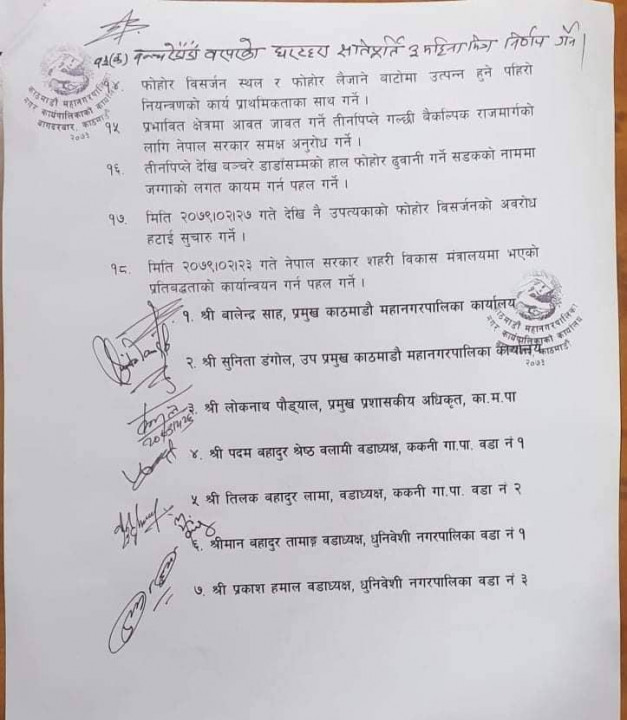 १३(क) वरपरका घरटहरा ३ महिना भित्र निर्णय गर्ने।
१४. फोहोर विसर्जन स्थल र फोहोर लैजाने बाटोमा उत्पन्न हुने पहिरो
नियन्त्रणको कार्य प्राथमिकताका साथ गर्ने ।
१५ प्रभावित क्षेत्रमा आवत जावत गर्ने तीनपिप्ले गल्छी वैकल्पिक राजमार्गको
लागि नेपाल सरकार समक्ष अनुरोध गर्ने ।
१६. तीनपिप्ले देखि बञ्चरे डाडाँसम्मको हाल फोहोर ढुवानी गर्ने सडकको नाममा
जग्गाको लगत कायम गर्न पहल गर्ने ।
१७. मिति २०७९।०२।२७ गते देखि नै उपत्यकाको फोहोर विसर्जनको अवरोध
हटाई सुचारु गर्ने ।
१८. मिति २०७९।०२।२३ गते नेपाल सरकार शहरी विकास मंत्रालयमा भएको
प्रतिबद्धताको कार्यान्वयन गर्न पहल गर्ने ।
१. श्री बालेन्द्र साह, प्रमुख काठमाडौ महानगरपालिका कार्यालय
२. श्री सुनिता डंगोल, उप प्रमुख काठमाडौ महानगरपालिका कार्यालय
३. श्री लोकनाथ पौड्याल, प्रमुख प्रशासकीय अधिकृत, का.म.पा
४. श्री पदम बहादुर श्रेष्ठ बलामी वडाध्यक्ष, ककनी गा.पा. वडा नं १
५ श्री तिलक बहादुर लामा, वडाध्यक्ष, ककनी गा.पा. वडा नं २
६. श्रीमान बहादुर तामाङ्ग वडाध्यक्ष, धुनिवेशी नगरपालिका वडा नं १
७. श्री प्रकाश हमाल वडाध्यक्ष, धुनिवेशी नगरपालिका वडा नं ३
काठमाडौं महानगरपालिका
नगर कार्यपालिकाको कार्यालय
बागदरबार, काठमाडौं
२०७३
काठमाडौं महानगरपालिका
नगर कार्यपालिकाको कार्यालय
काठमाडौं
२०७३